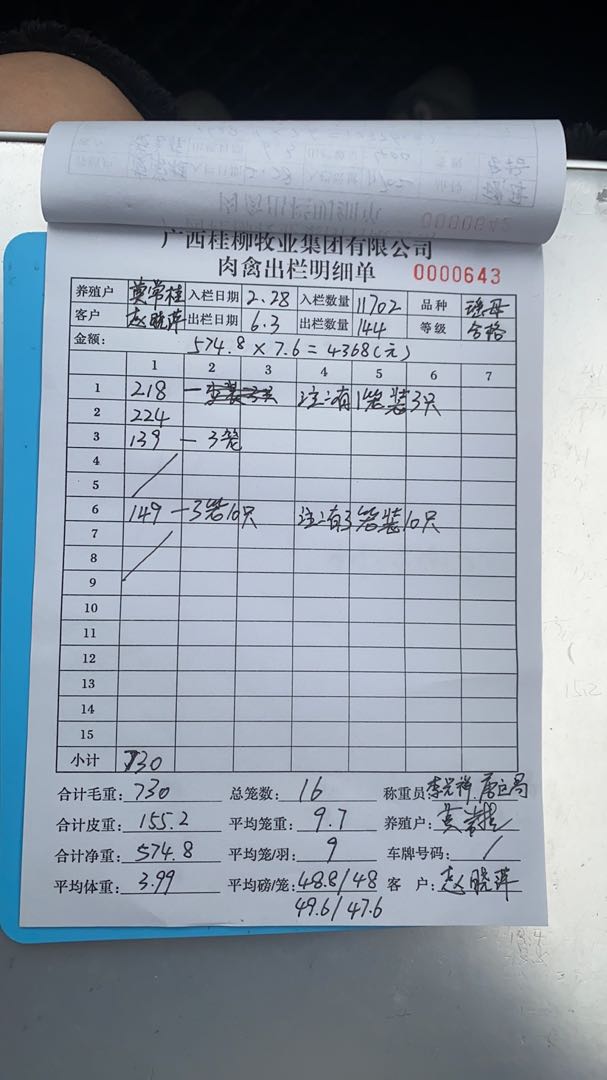 广西桂柳牧业集团有限公司
肉禽出栏明细单 0000643
养殖户 莫常桂 入栏日期 2.28 入栏数量 11702 品种 瑶母
客户 赵晓萍 出栏日期 6.3 出栏数量 144 等级 合格
金额: 574.8 × 7.6 = 4368(元)
1 2 3 4 5 6 7
1 218 注:有1笼装3只
2 224
3 139 — 3笼
4
5
6 149 — 3笼10只 注:有3笼装10只
7
8
9
10
11
12
13
14
15
小计 730
合计毛重: 730 总笼数: 16 称重员:
合计皮重: 155.2 平均笼重: 9.7 养殖户:
合计净重: 574.8 平均笼/羽: 9 车牌号码: /
平均体重: 3.99 平均磅/笼: 48.8/48 客 户: 赵晓萍
49.6/47.6